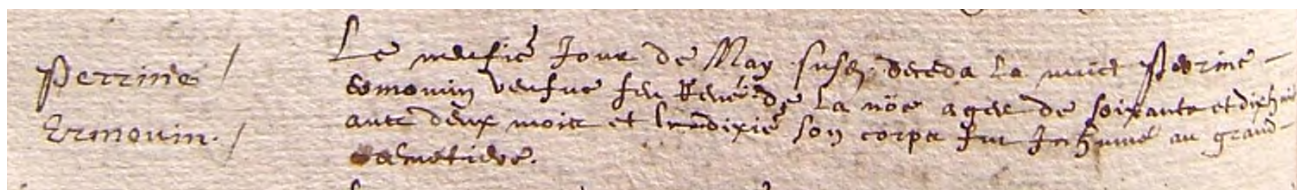 Perrine
Ermouin.
Le neufie Jour de May susd. deceda la nuict Perrine
ermouin veufue feu René de la nöe agee de soixante et dixhuit
ans deux mois et le son corps fut Inhumé au grand
cemetiere.